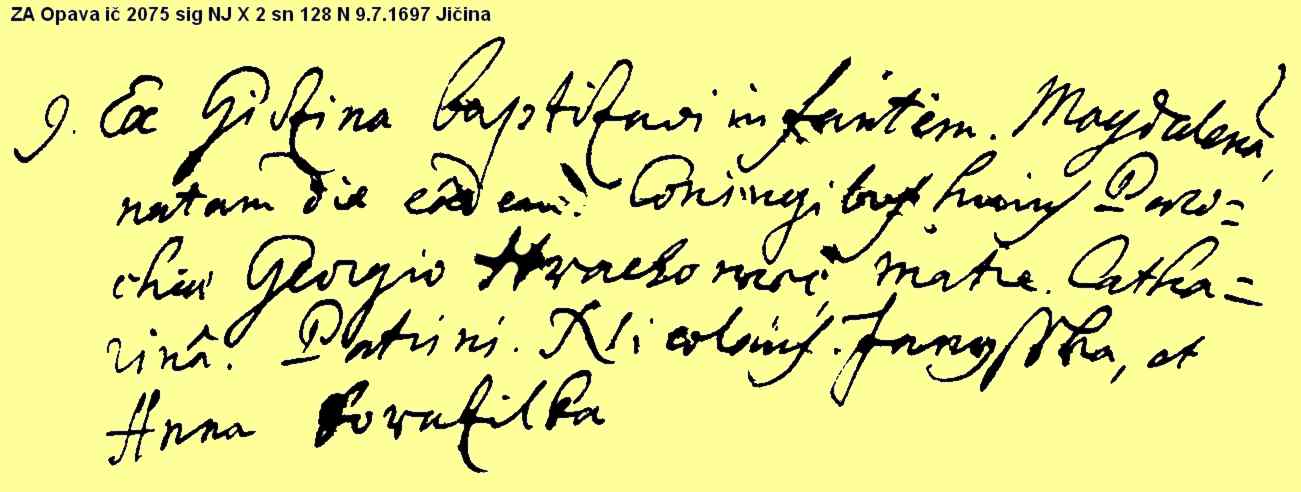 ZA Opava ič 2075 sig NJ X 2 sn 128 N 9.7.1697 Jičina
9. Ex Gistzina baptizavi infantem. Magdalenā
natam die eādem. Coniugibus huius Paro=
chiae Georgio matre. Catha=
rinâ. Patrini. Nicolaus. Janyſſka, et
Anna